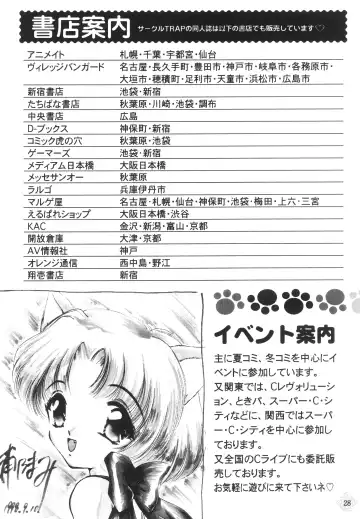 書店案内 サークルTRAPの同人誌は以下の書店でも販売しています♡
アニメイト 札幌・千葉・宇都宮・仙台
ヴィレッジバンガード 名古屋・長久手町・豊田市・神戸市・岐阜市・各務原市・
大垣市・穂積町・足利市・天童市・浜松市・広島市
新宿書店 池袋・新宿
たちばな書店 秋葉原・川崎・池袋・調布
中央書店 広島
D-ブックス 神保町・新宿
コミック虎の穴 秋葉原・池袋
ゲーマーズ 池袋・新宿
メディアム日本橋 大阪日本橋
メッセサンオー 秋葉原
ラルゴ 兵庫伊丹市
マルゲ屋 名古屋・札幌・仙台・神保町・池袋・梅田・上六・三宮
えるぱれショップ 大阪日本橋・渋谷
KAC 金沢・新潟・富山・京都
開放倉庫 大津・京都
AV情報社 神戸
オレンジ通信 西中島・野江
翔壱書店 新宿
イベント案内
主に夏コミ、冬コミを中心にイ
ベントに参加しています。
又関東では、CLレヴォリューショ
ン、ときパ、スーパー・C・シ
ティなどに、関西ではスーパ
ー・C・シティを中心に参加し
ております。
又全国のCライブにも委託販
売しております。
お気軽に遊びに来て下さいネ♡
1998.9.10
28